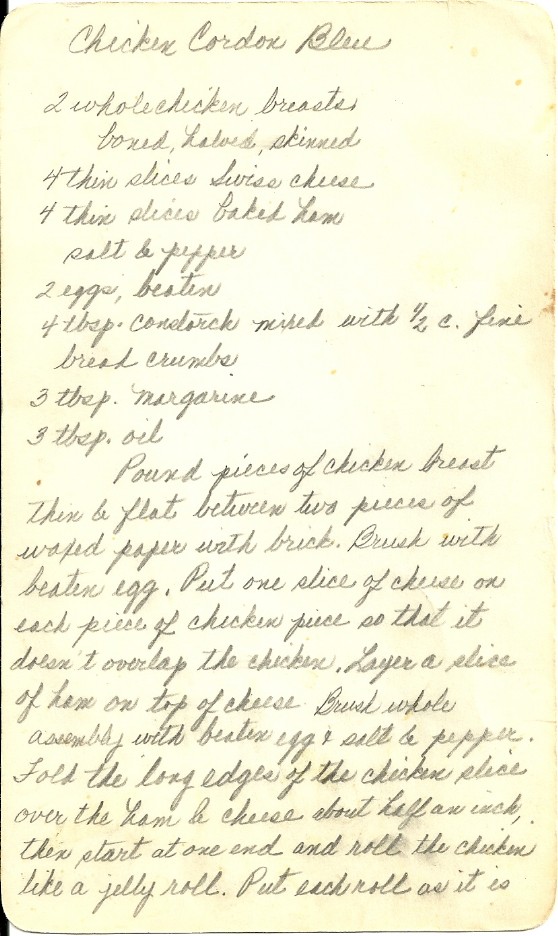 Chicken Cordon Bleu
2 whole chicken breasts,
boned, halved, skinned
4 thin slices Swiss cheese
4 thin slices baked ham
salt & pepper
2 eggs, beaten
4 tbsp. constarch mixed with 1/2 c. fine
bread crumbs
3 tbsp. margarine
3 tbsp. oil
Pound pieces of chicken breast
thin & flat between two pieces of
waxed paper with brick. Brush with
beaten egg. Put one slice of cheese on
each piece of chicken piece so that it
doesn't overlap the chicken. Layer a slice
of ham on top of cheese Brush whole
assembly with beaten egg & salt & pepper.
Fold the long edges of the chicken slice
over the ham & cheese about half an inch,
then start at one end and roll the chicken
like a jelly roll. Put each roll as it is